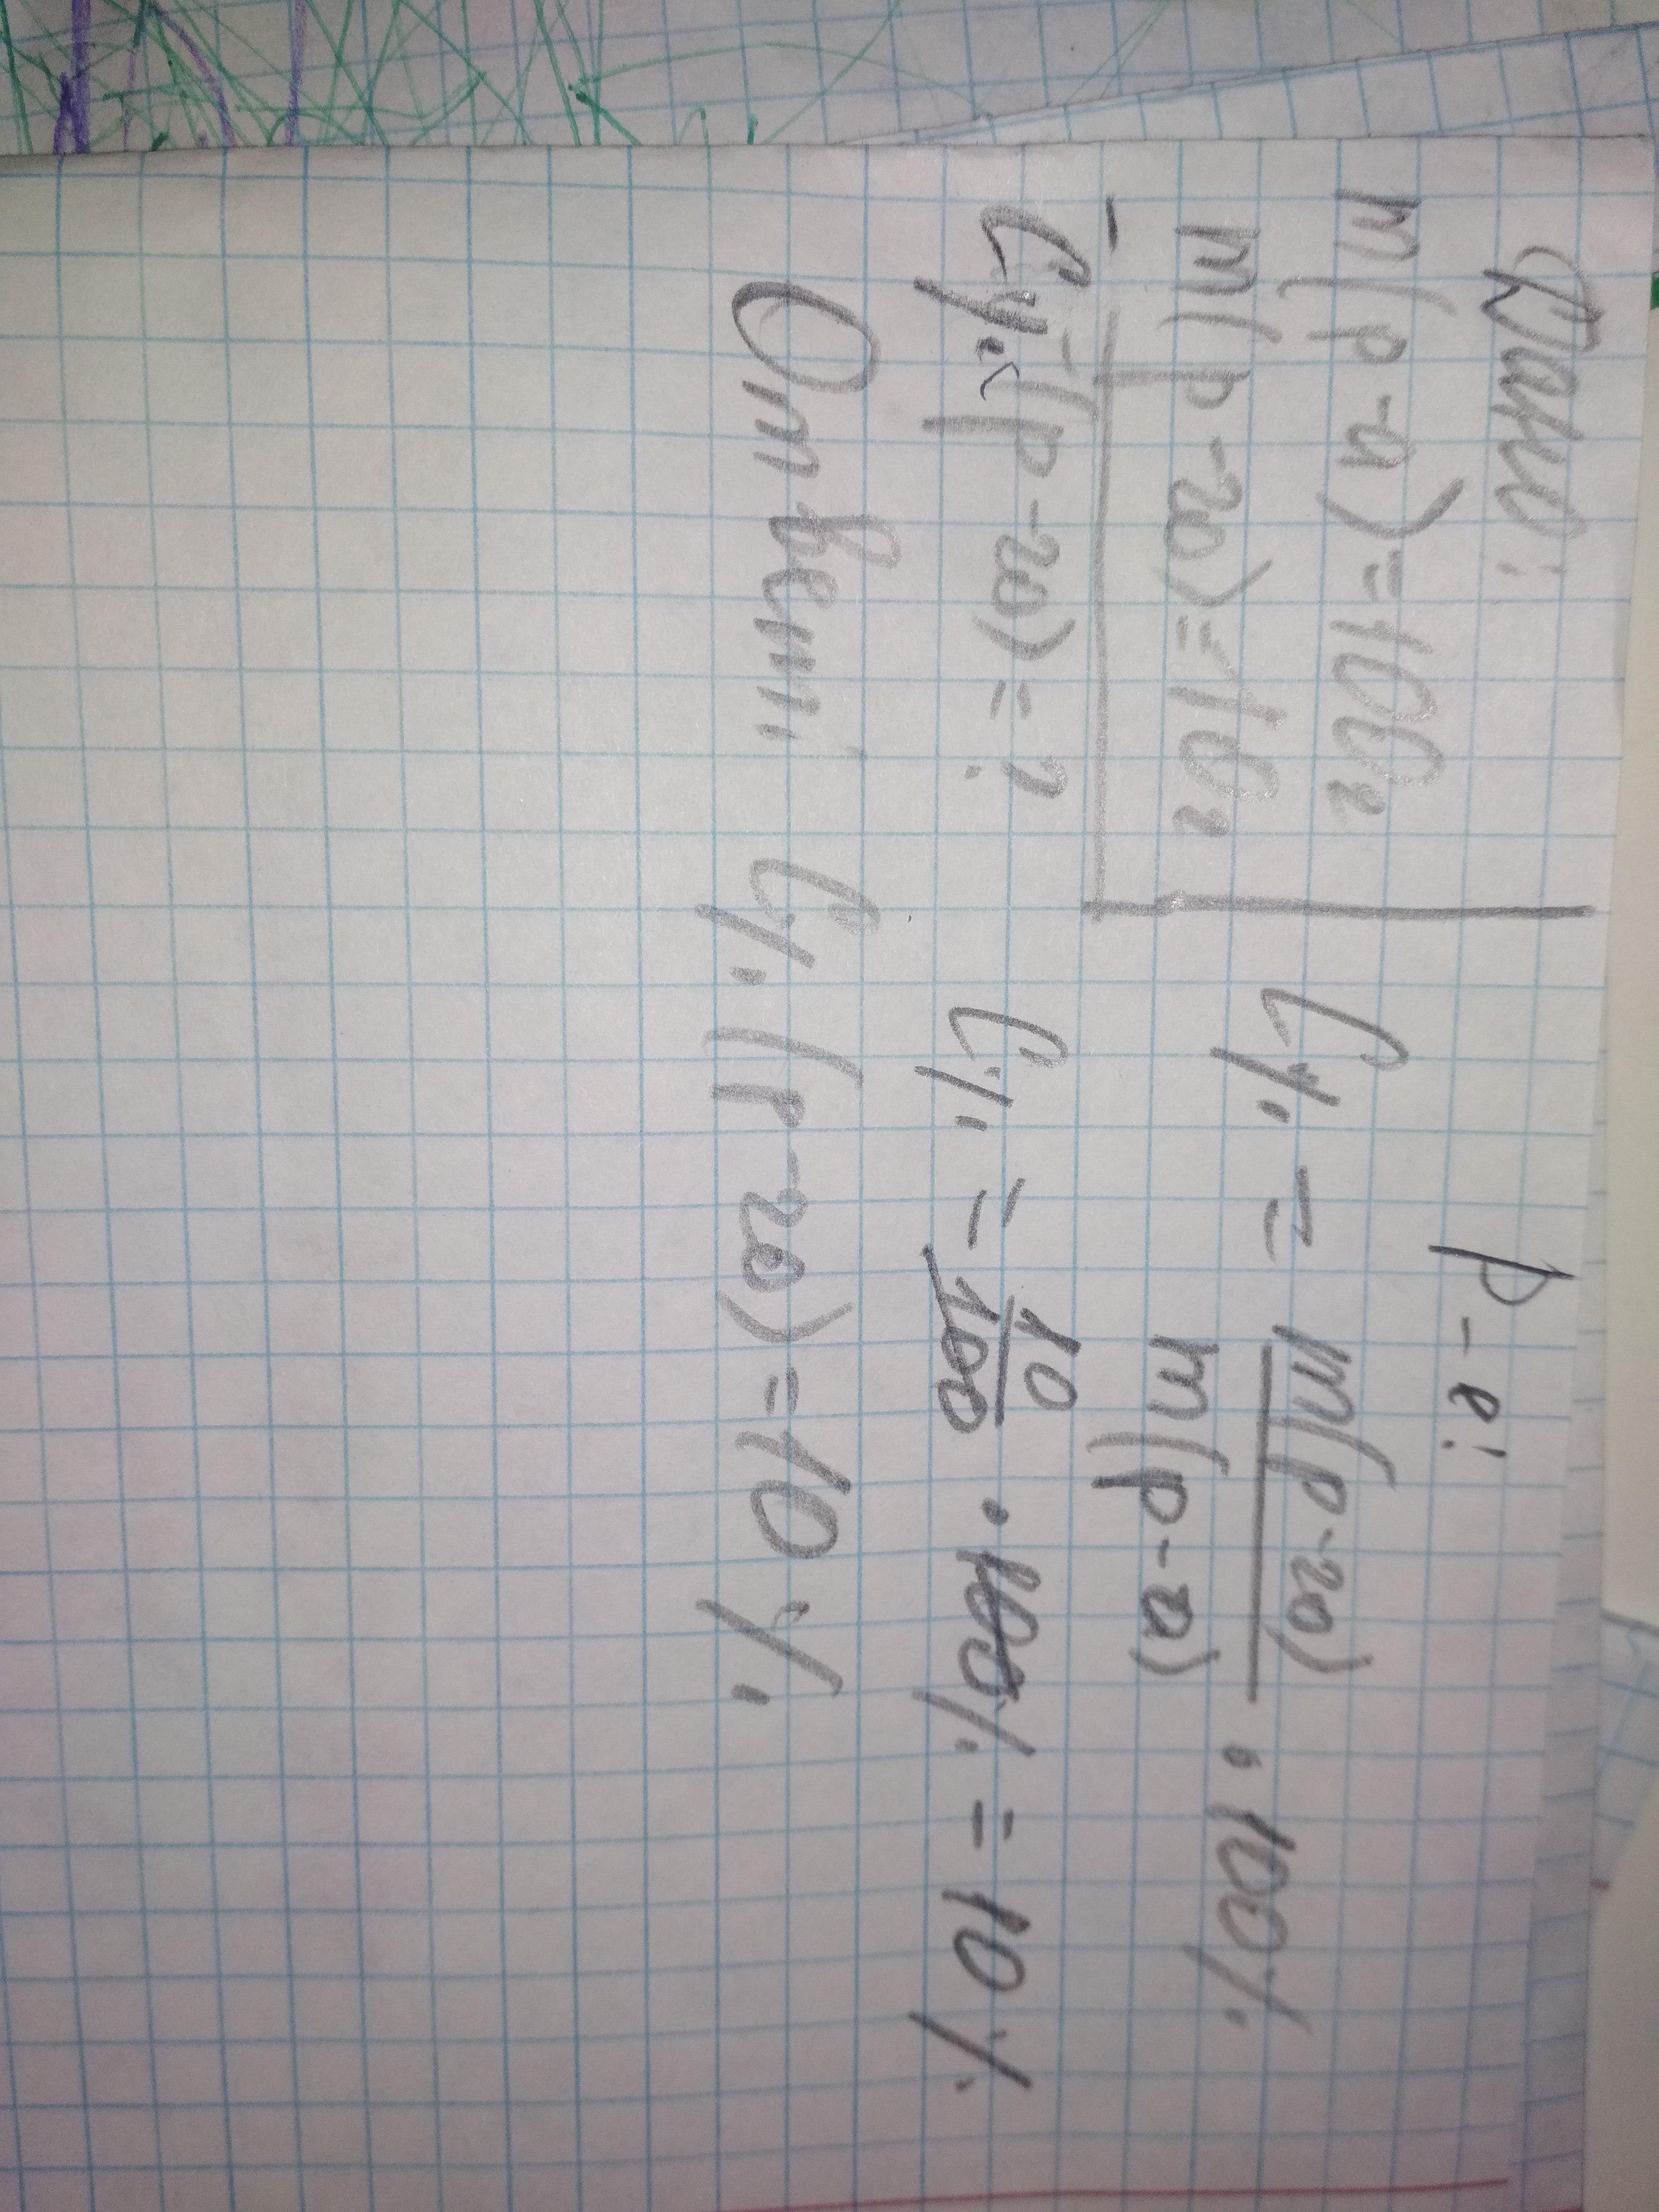 Дано:
m(р-а)=100г
m(р-го)=10г
C%(р-го)=?
р-е:
C% = m(р-го) / m(р-а) · 100%
C% = 10/100 · 100% = 10%
Ответ: C%(р-го)=10%